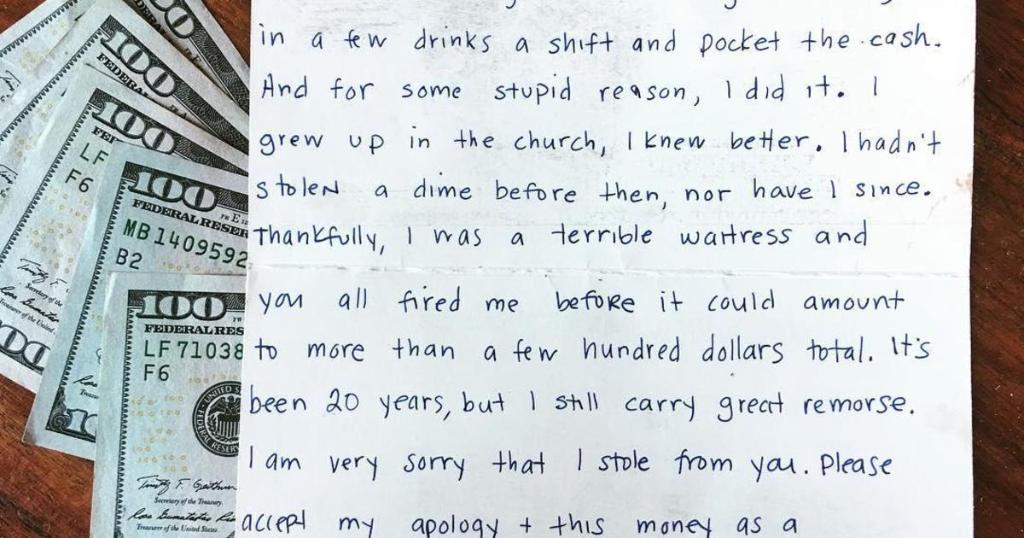 in a few drinks a shift and pocket the cash.
And for some stupid reason, I did it. I
grew up in the church, I knew better. I hadn't
stolen a dime before then, nor have I since.
Thankfully, I was a terrible waitress and
you all fired me before it could amount
to more than a few hundred dollars total. It's
been 20 years, but I still carry great remorse.
I am very sorry that I stole from you. Please
accept my apology + this money as a
100
100
100
LF
F6
100
FEDERAL RESER
MB1409592
B2
100
FEDERAL RES
LF71038
F6
Secretary of the Treasury
Treasurer of the United States